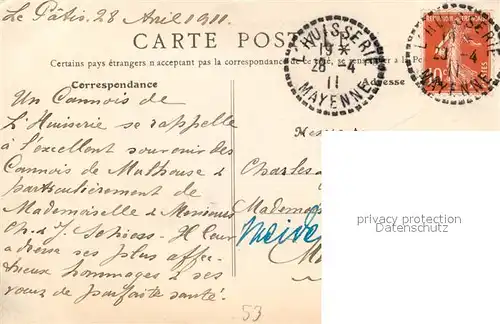 Le Pâtis. 28 Avril 1911.
CARTE POSTALE
Certains pays étrangers n'acceptant pas la correspondance de ce côté, se renseigner à la Poste
Correspondance
Adresse
L'HUISSERIE
19 *
28 -4
11
MAYENNE
L'HUISSERIE
28 -4
MAYENNE
10c
Un Cannois de
L'Huiserie se rappelle
à l'excellent souvenir des
Cannois de Mulhouse &
particulièrement de
Mademoiselle & Messieurs
Ch. & J. Schiess. Il leur
adresse ses plus affec-
tueux hommages & ses
vœux de parfaite santé!
Charles
Mademoi
privacy protection
Datenschutz
53